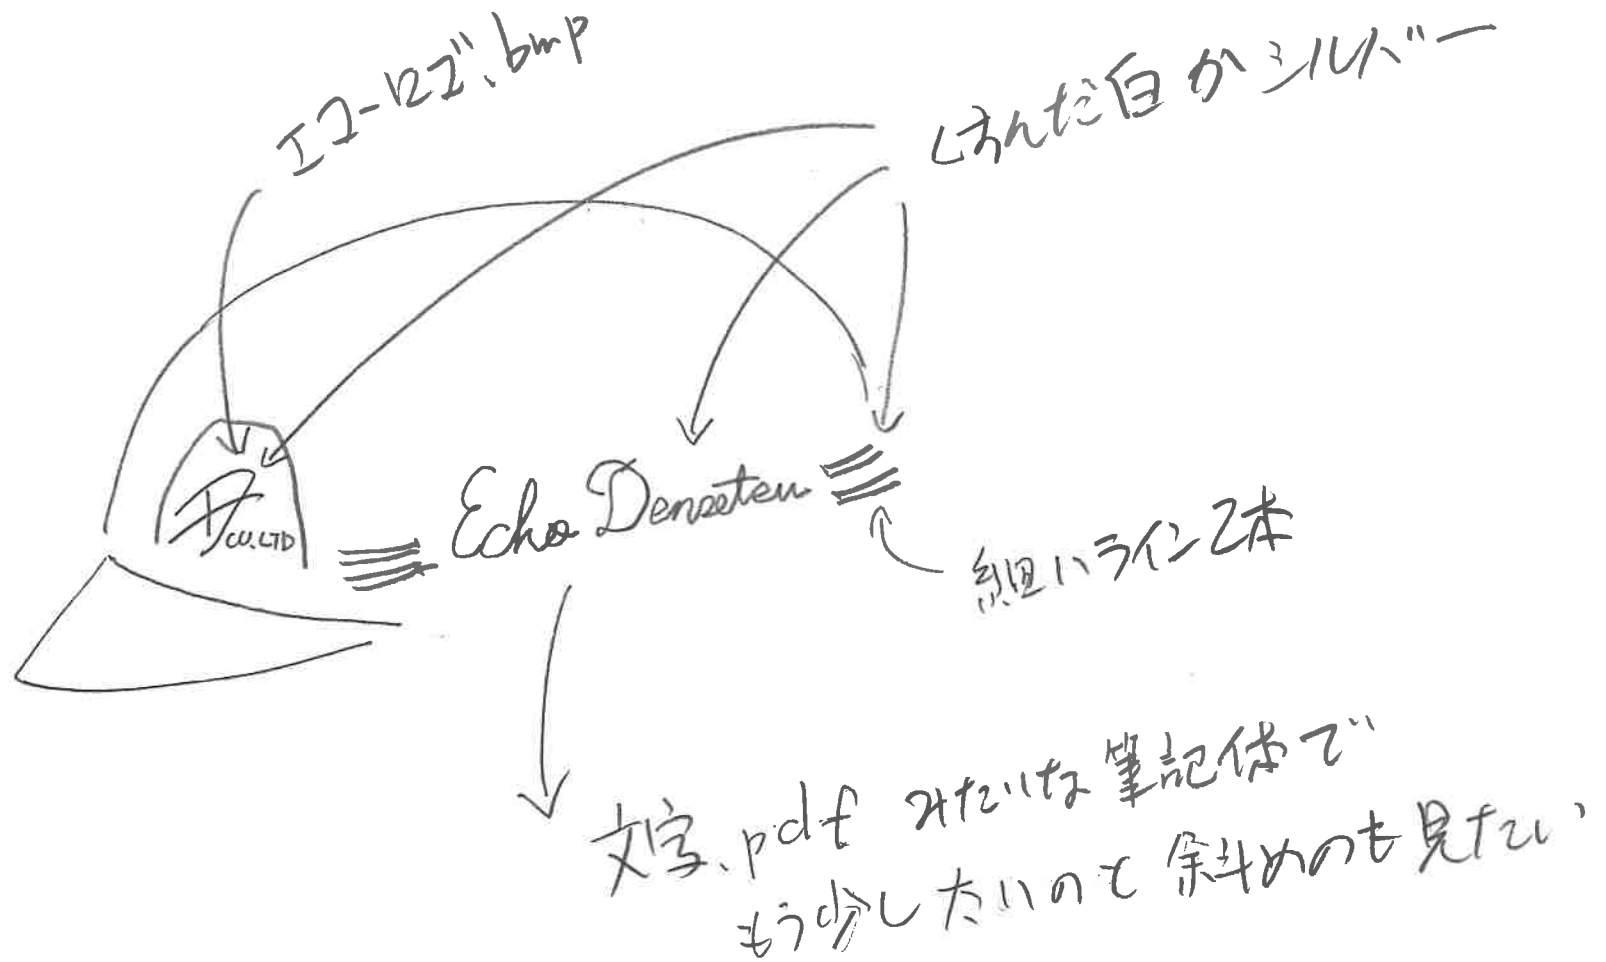 エコーロゴ.bmp
くすんだ白かシルバー
CO.LTD
Echo Densetsu
細いライン2本
文字.pdf みたいな筆記体で
もう少し太いのと斜めのも見たい